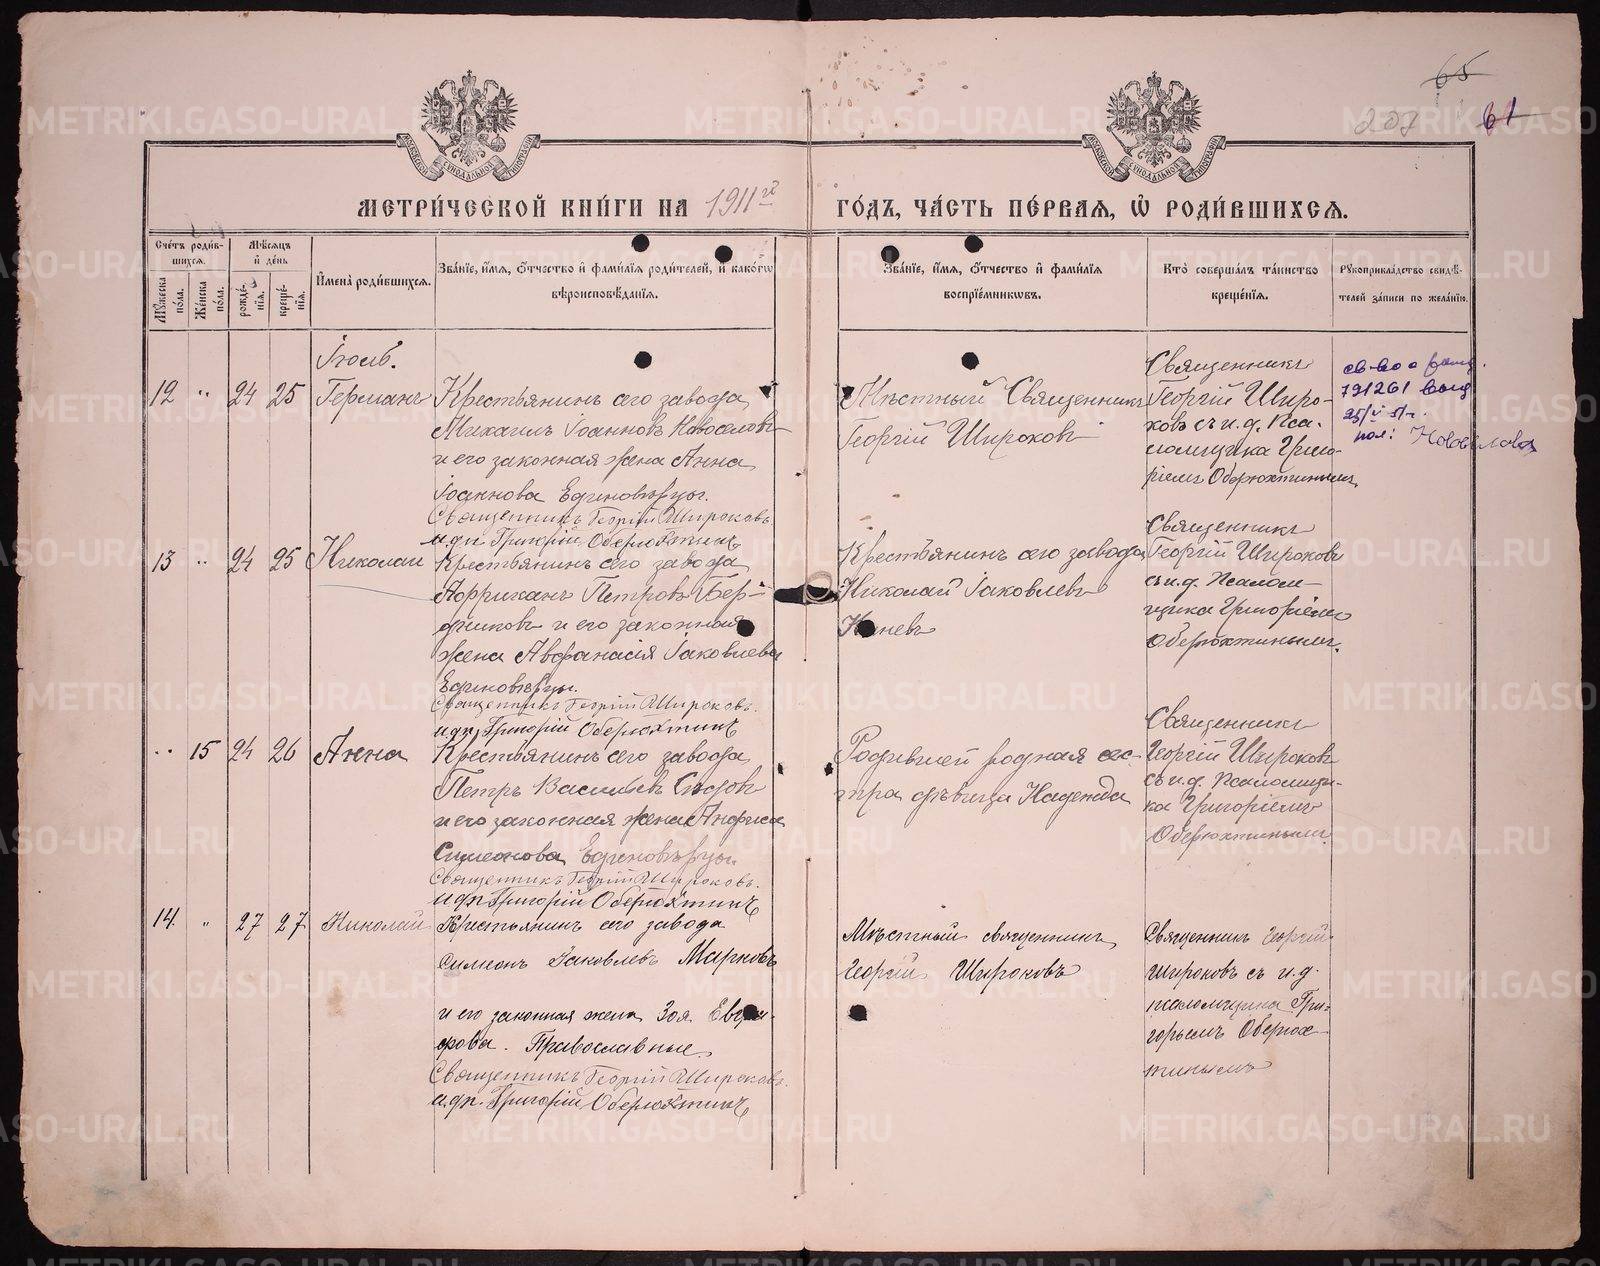 65
207 61
МЕТРИ́ЧЕСКОЙ КНИ́ГИ НА 1911й ГО́ДЪ, ЧА́СТЬ ПЕ́РВАЯ, Ѡ РОДИ́ВШИХСЯ.
Сче́тъ роди́в-
шихся.
Мѹ́жеска по́ла.
Же́нска по́ла.
Мѣ́сяцъ и де́нь
рожде́-
нїя.
креще́-
нїя.
Имена̀ роди́вшихся.
Зва́нїе, и́мя, о́тчество и фами́лїя роди́телей, и како́гѡ
вѣроисповѣ́данїя.
Зва́нїе, и́мя, о́тчество и фами́лїя
воспрїе́мникѡвъ.
Кто̀ соверша́лъ та́инство
креще́нїя.
Рѹкоприкла́дство свидѣ́-
телей за́писи по жела́нїю.
Іюль.
12 " 24 25 Германъ
Крестьянинъ сего завода
Михаилъ Іоанновъ Новоселовъ
и его законная жена Анна
Іоаннова Единовѣрцы.
Священникъ Георгій Широковъ.
и.д.п. Григорій Оберюхтинъ
Мѣстный Священникъ
Георгій Широковъ
Священникъ
Георгій Широ-
ковъ съ и.д. Пса-
ломщика Григо-
ріемъ Оберюхтинымъ
св-во о
791261 выд
25/V
пол: Новоселова
13 " 24 25 Николай
Крестьянинъ сего завода
Аффриканъ Петровъ Бер-
дниковъ и его законная
жена Авфанасія Іаковлева
Единовѣрцы.
Священникъ Георгій Широковъ.
и.д.п. Григорій Оберюхтинъ
Крестьянинъ сего завода
Николай Іаковлевъ
Священникъ
Георгій Широковъ
съ и.д. Псалом-
щика Григоріемъ
Оберюхтинымъ.
" 15 24 26 Анна
Крестьянинъ сего завода
Петръ Васильевъ Сѣдовъ
и его законная жена Анфиса
Симеонова Единовѣрцы
Священникъ Георгій Широковъ.
и.д.п. Григорій Оберюхтинъ
Родившей родная сес-
тра дѣвица Надежда
Священникъ
Георгій Широковъ
съ и.д. Псаломщи-
ка Григоріемъ
Оберюхтинымъ
14. " 27 27 Николай
Крестьянинъ сего завода
Симеонъ Іаковлевъ Марковъ
и его законная жена Зоя Евгра-
фова. Православные.
Священникъ Георгій Широковъ.
и.д.п. Григорій Оберюхтинъ
Мѣстный священникъ
Георгій Широковъ
Священникъ Георгій
Широковъ съ и.д.
псаломщика Гри-
горьемъ Оберюх-
тинымъ